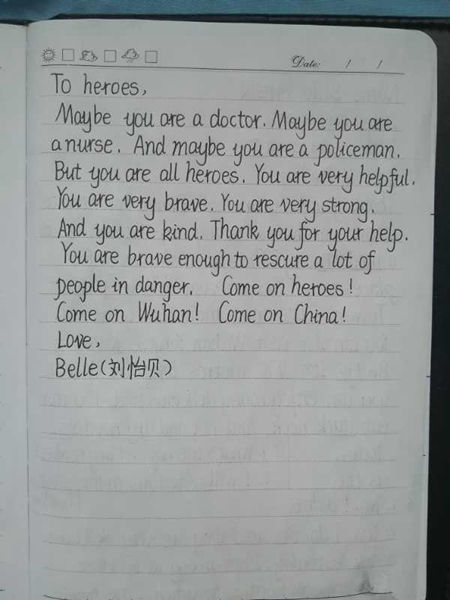 Date: / /
To heroes,
Maybe you are a doctor. Maybe you are
a nurse. And maybe you are a policeman.
But you are all heroes. You are very helpful.
You are very brave. You are very strong.
And you are kind. Thank you for your help.
You are brave enough to rescure a lot of
people in danger. Come on heroes!
Come on Wuhan! Come on China!
Love,
Belle(刘怡贝)